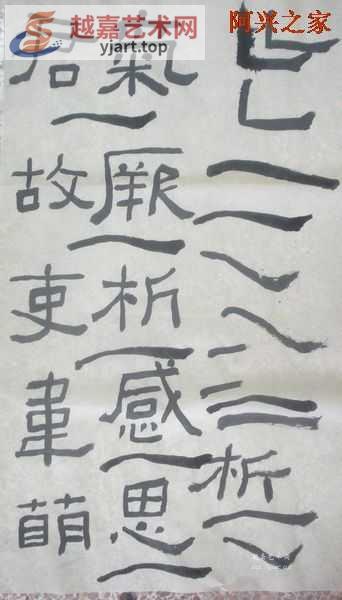 阿兴之家
越嘉艺术网
yjart.top
析
氣厥析感思
君故吏韋萌